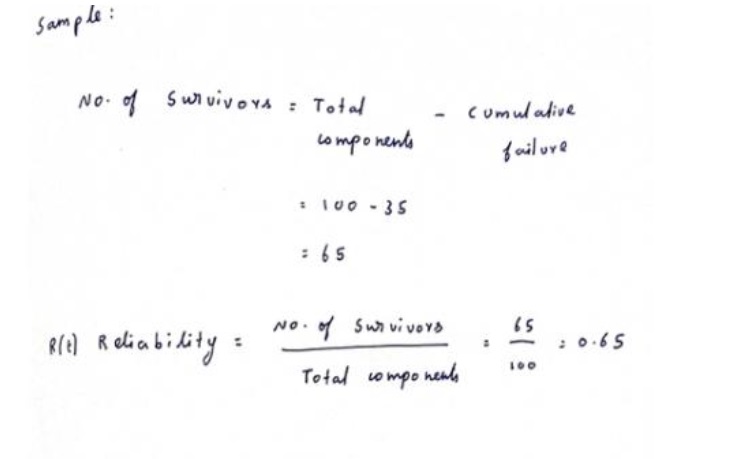 Sample:
No. of Survivors = Total components - Cumulative failure
= 100 - 35
= 65
R(t) Reliability = No. of Survivors / Total components = 65 / 100 = 0.65